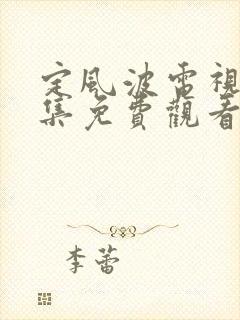 定風波電視
集免費觀看
李蕾